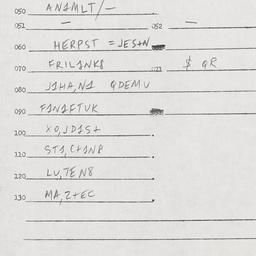 050 AN1MLT/-
051 - 052 -
060 HERPST = JES+N
070 FRIL1NK8 071 $ QR
080 J1HA,N1 QDEMU
090 F1N1FTUK
100 XO,JD1S+
110 ST1,C+1N8
120 LU,TEN8
130 MA,2+EC